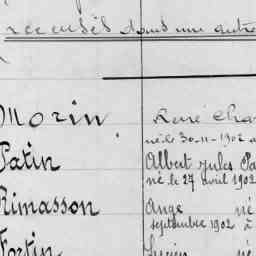 recensés dans une autre
Morin René Char
né le 30-11-1902 à
Patin Albert Jules Pa
né le 27 avril 1902
Rimasson Ange né
septembre 1902 à
Fortin Lucien né